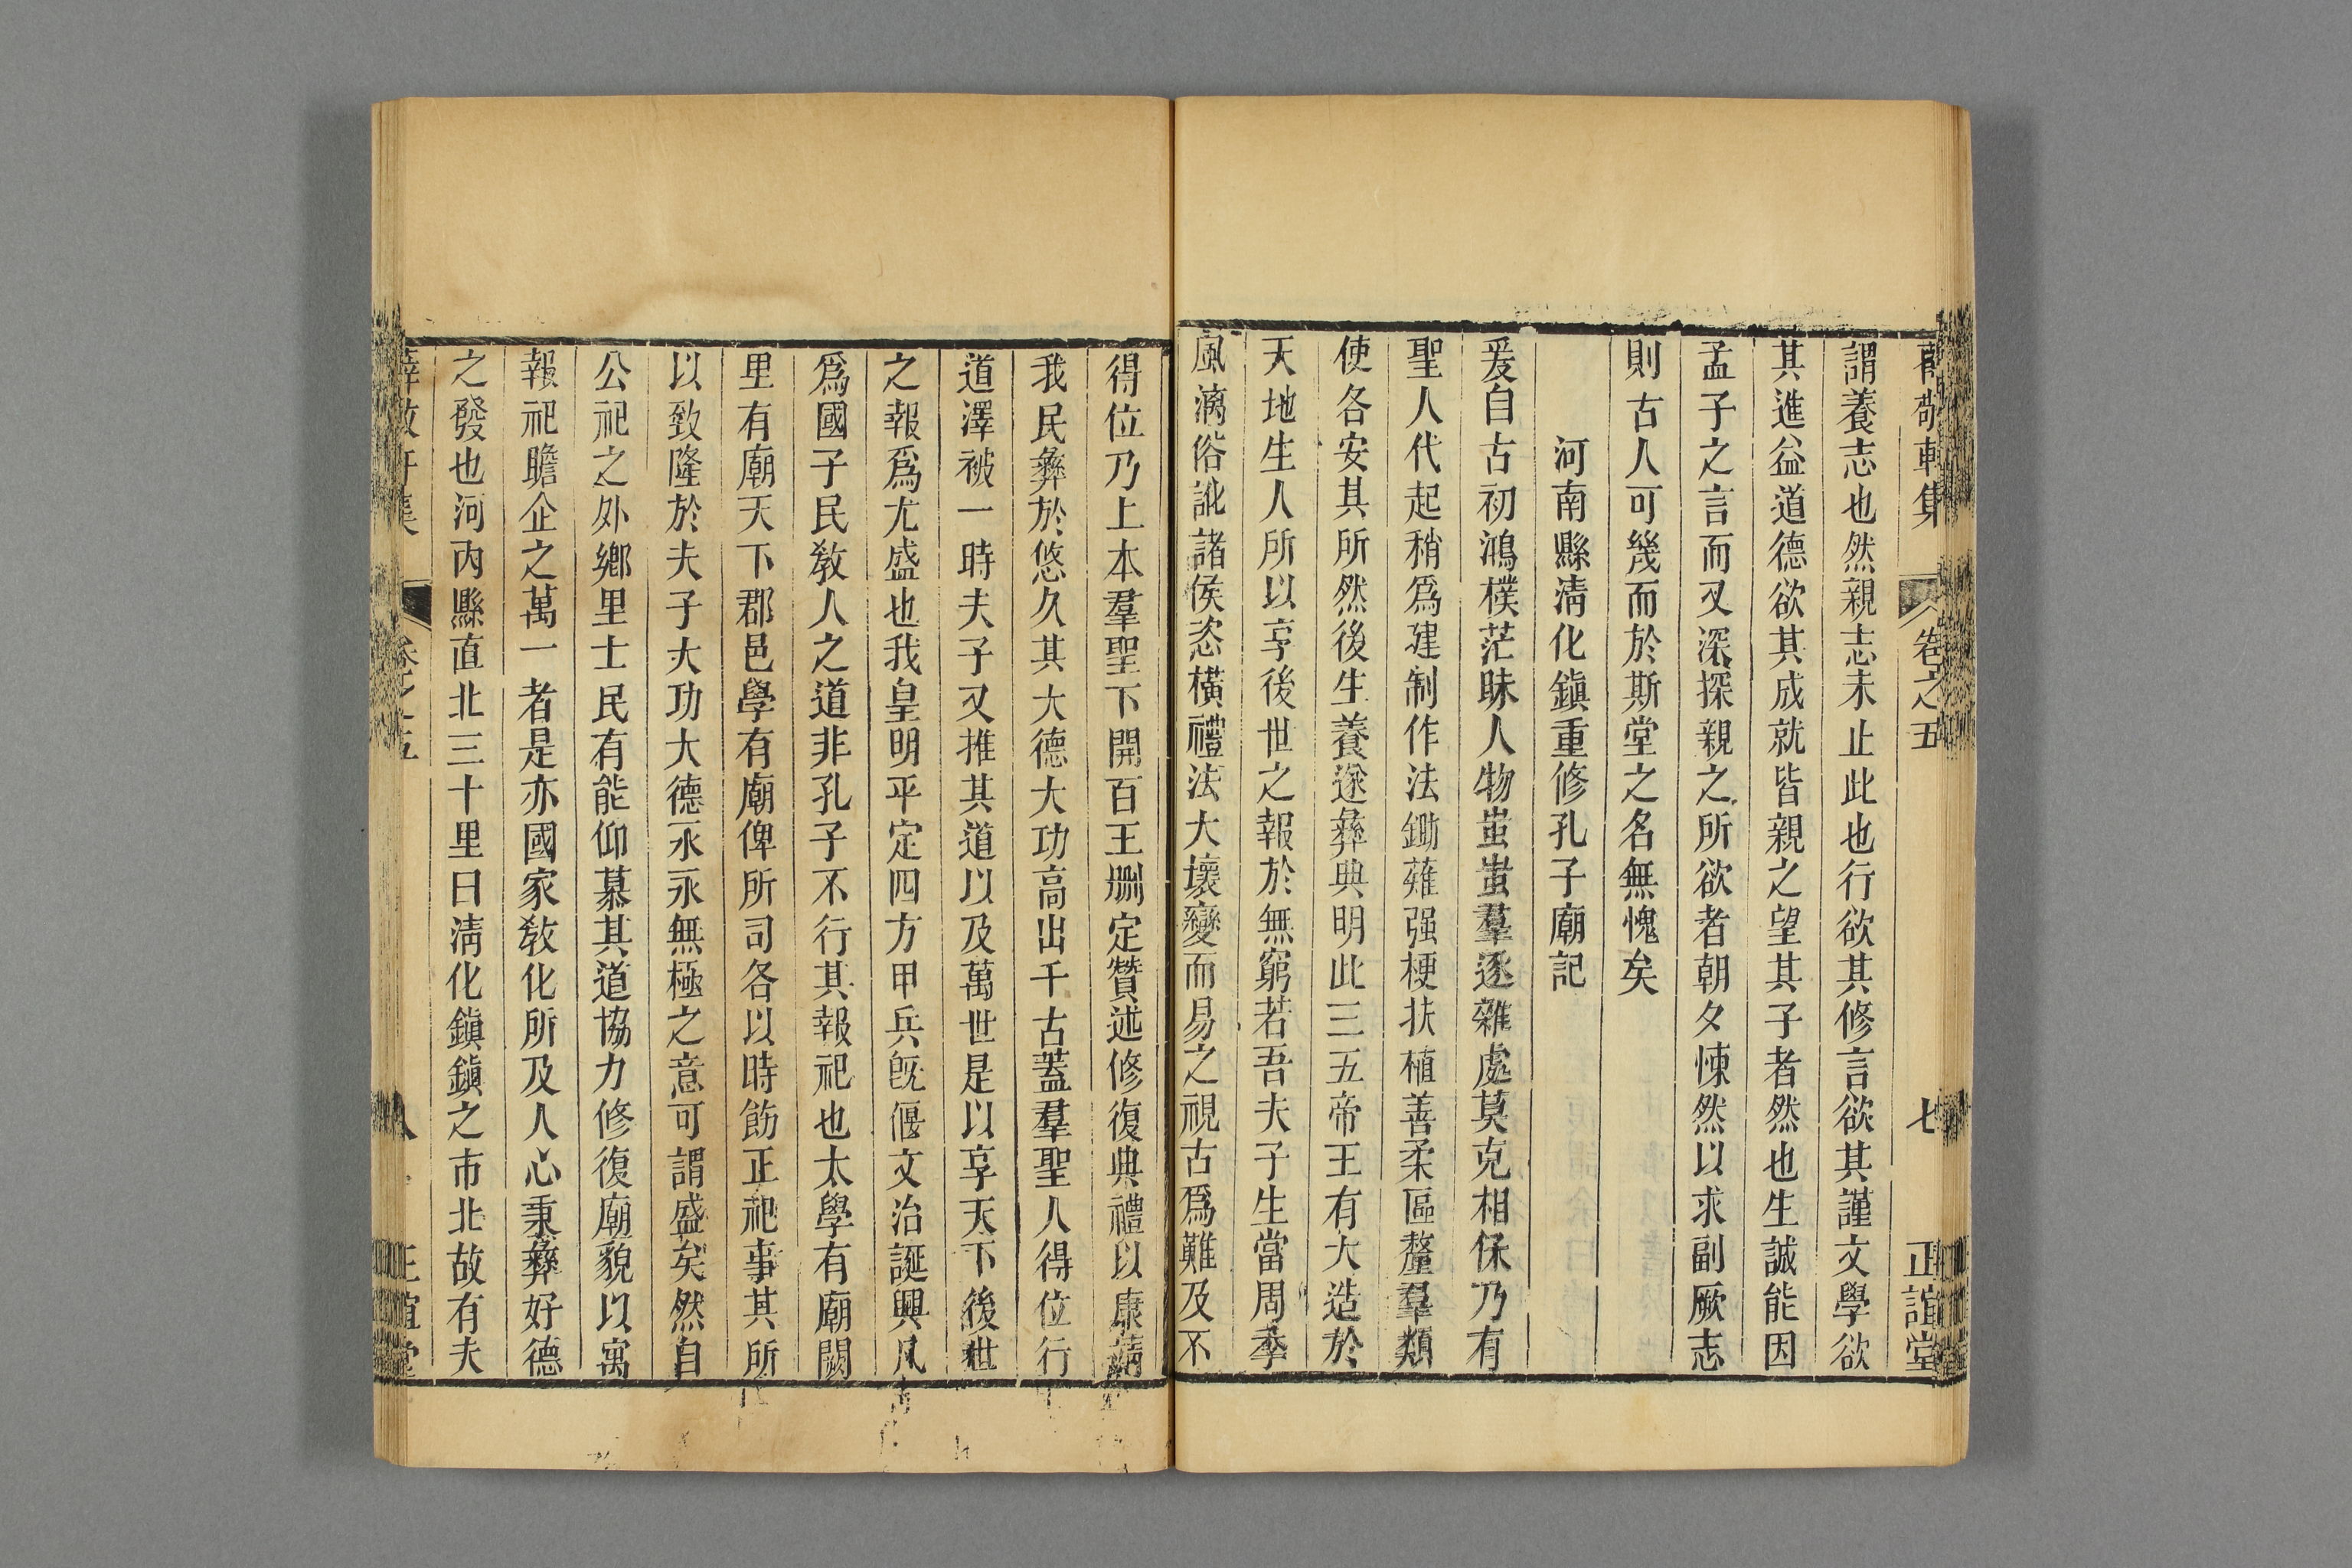 薛敬軒集 卷之五 七 正誼堂
謂養志也然親志未止此也行欲其修言欲其謹文學欲
其進益道德欲其成就皆親之望其子者然也生誠能因
孟子之言而又深探親之所欲者朝夕悚然以求副厥志
則古人可幾而於斯堂之名無愧矣
河南縣清化鎮重修孔子廟記
爰自古初鴻樸茫昧人物蚩蚩羣逐雜處莫克相保乃有
聖人代起稍爲建制作法鋤薙强梗扶植善柔區釐羣類
使各安其所然後生養遂彝典明此三五帝王有大造於
天地生人所以享後世之報於無窮若吾夫子生當周季
風漓俗訛諸侯恣橫禮法大壞變而易之視古爲難及不
得位乃上本羣聖下開百王刪定贊述修復典禮以康靖
我民彝於悠久其大德大功高出千古蓋羣聖人得位行
道澤被一時夫子又推其道以及萬世是以享天下後世
之報爲尤盛也我皇明平定四方甲兵旣偃文治誕興凡
爲國子民敎人之道非孔子不行其報祀也太學有廟闕
里有廟天下郡邑學有廟俾所司各以時飭正祀事其所
以致隆於夫子大功大德永永無極之意可謂盛矣然自
公祀之外鄉里士民有能仰慕其道協力修復廟貌以寓
報祀瞻企之萬一者是亦國家敎化所及人心秉彝好德
之發也河內縣直北三十里曰清化鎮鎮之市北故有夫
薛敬軒集 卷之五 八 正誼堂